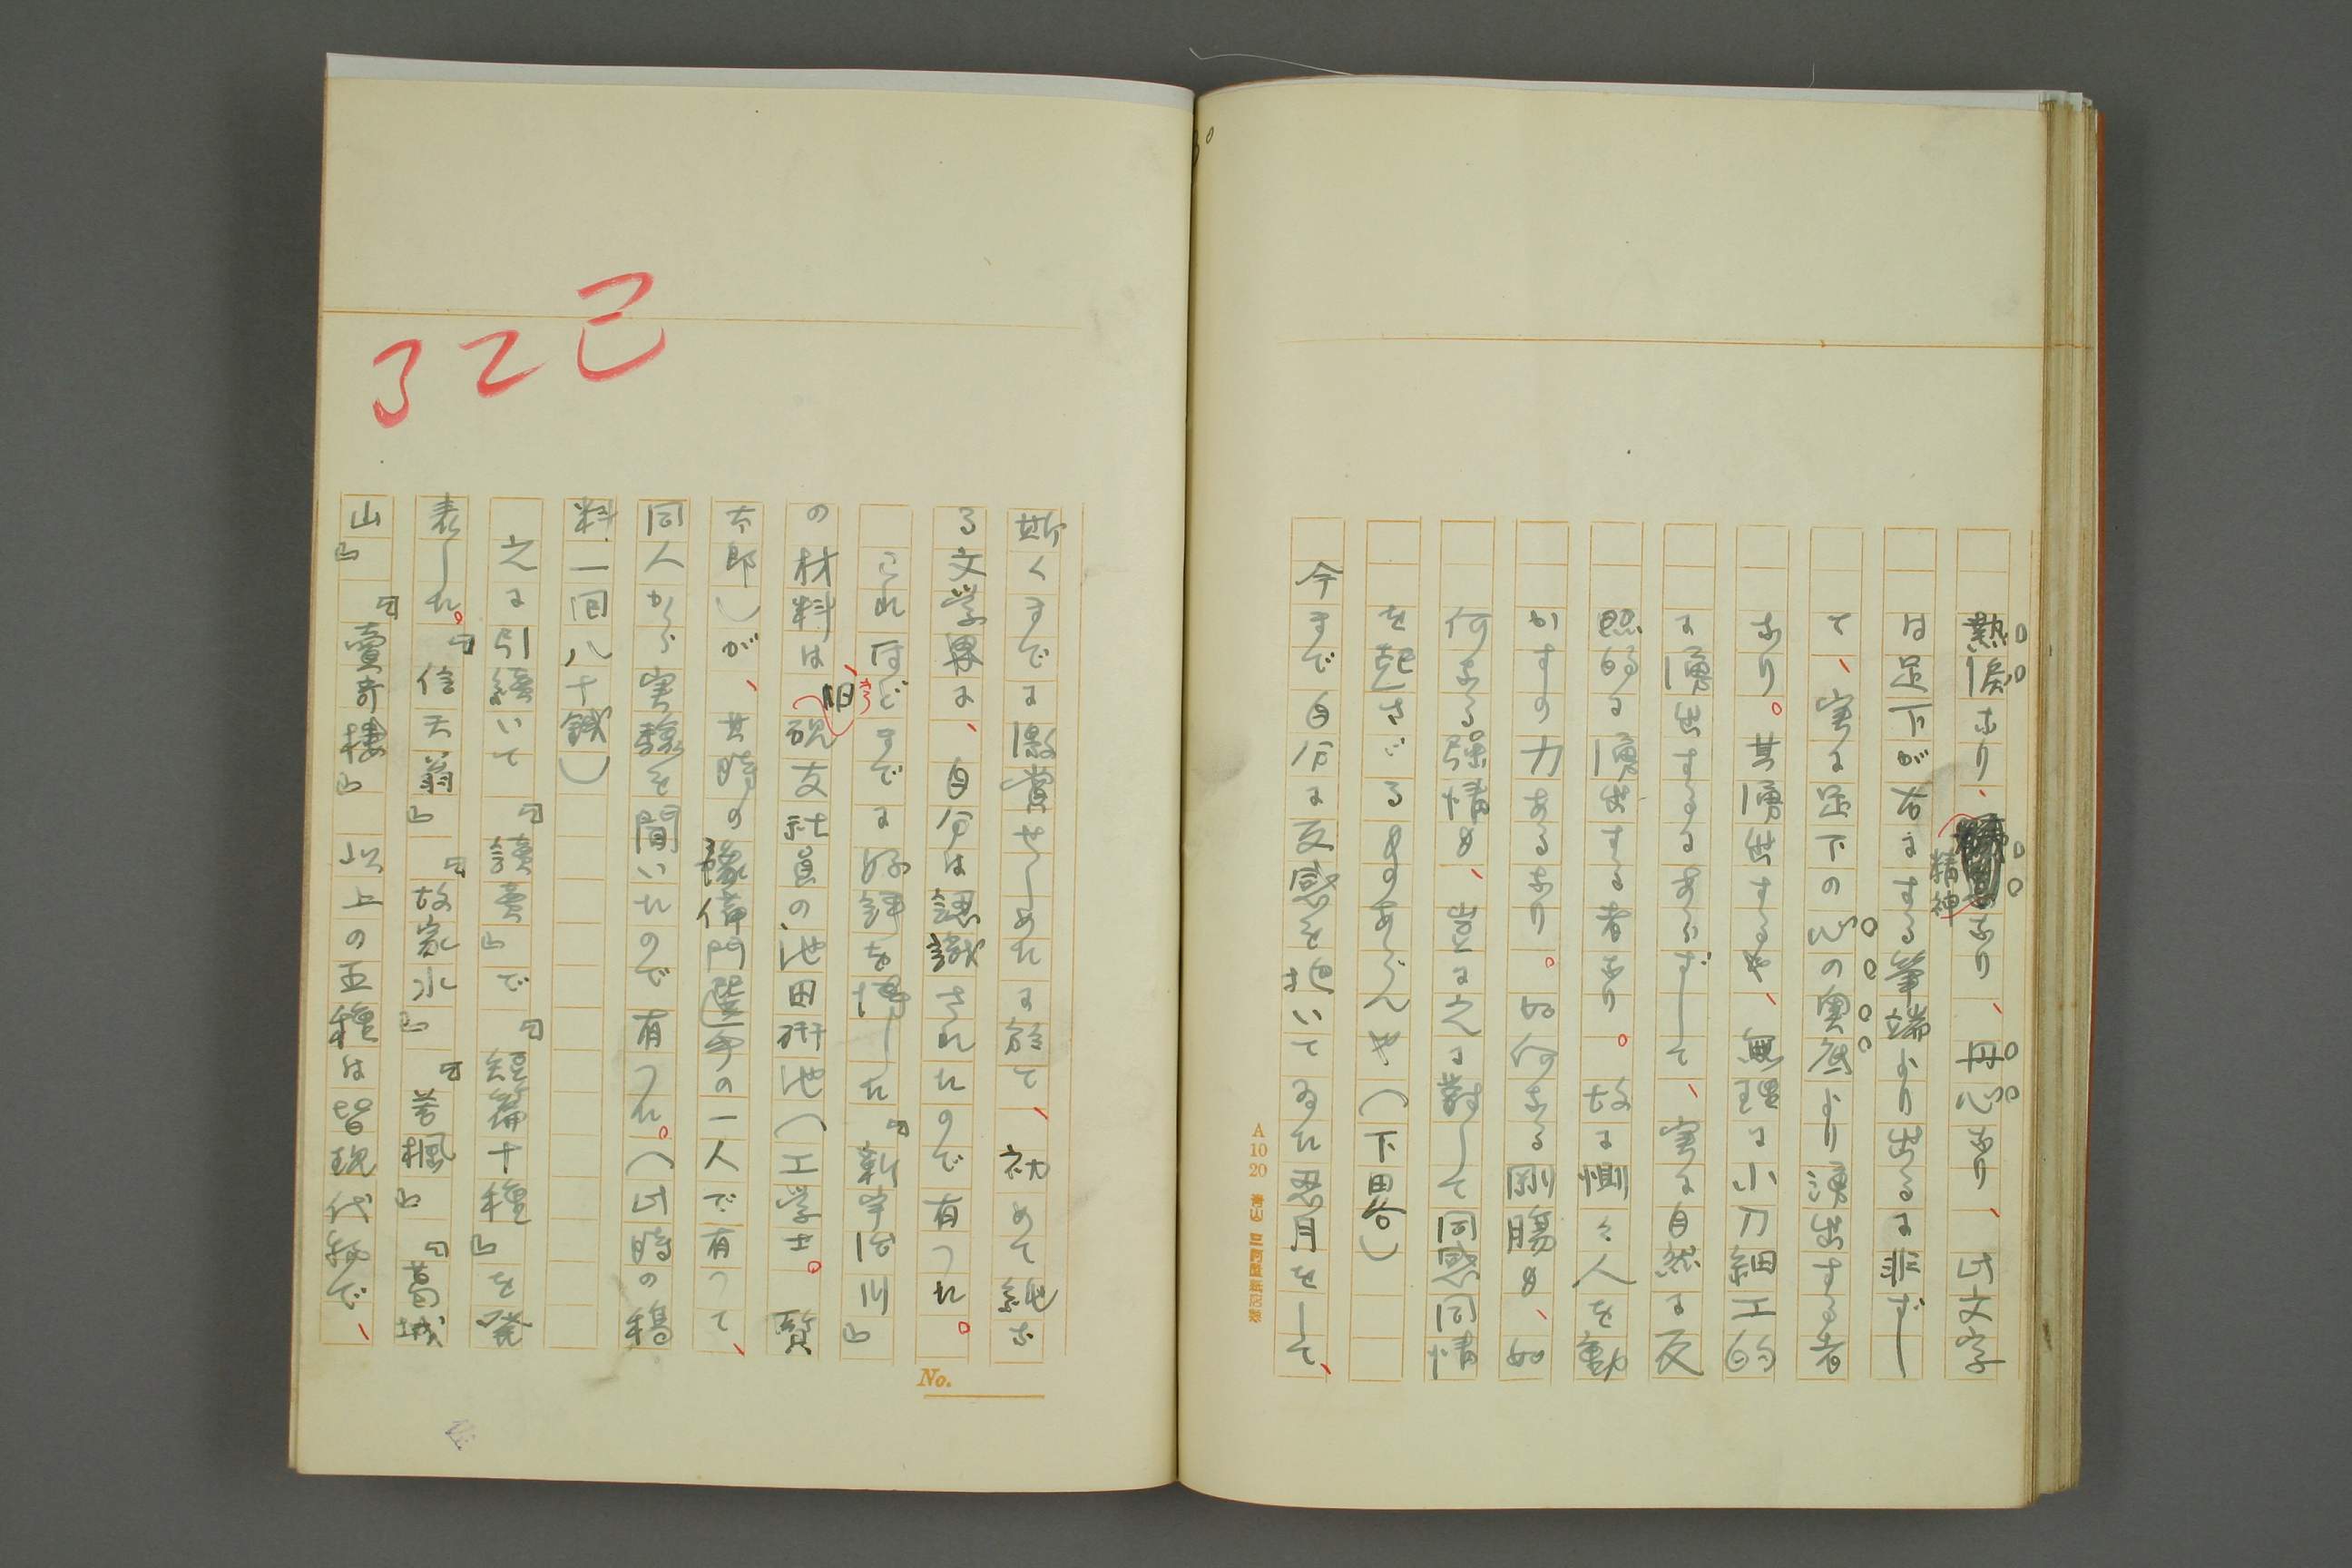 熱涙あり、精神あり、丹心あり、此文字
は足下が右手する筆端より出るに非ずし
て、実に足下の心の奥底より湧出する者
なり。其湧出するや、無理に小刀細工的
に湧出するにあらずして、実に自然に反
照的に湧出する者なり。故に惻々人を動
かすの力あるなり。如何なる剛腸も、如
何なる強情も、豈に之に対して同感同情
を起さざるものあらんや（下田谷）
今まで自分に反感を抱いてゐた思月をして、
斯くまでに激賞せしめたに於て、初めて純な
る文学界に、自分は認識されたので有つた。
これほどまでに好評を博した『新宇治川』
の材料は、旧硯友社員の池田硏池（工学士。賢
太郎）が、其時の豫備門選手の一人で有つて、
同人から実験を聞いたので有つた。（此時の稿
料一回八十銭）
之に引続いて『読売』で『短篇十種』を発
表した。『信天翁』『故家水』『若楓』『葛城
山』『売奇楼』以上の五種は皆現代物で、
322
己
A 10 20
No.